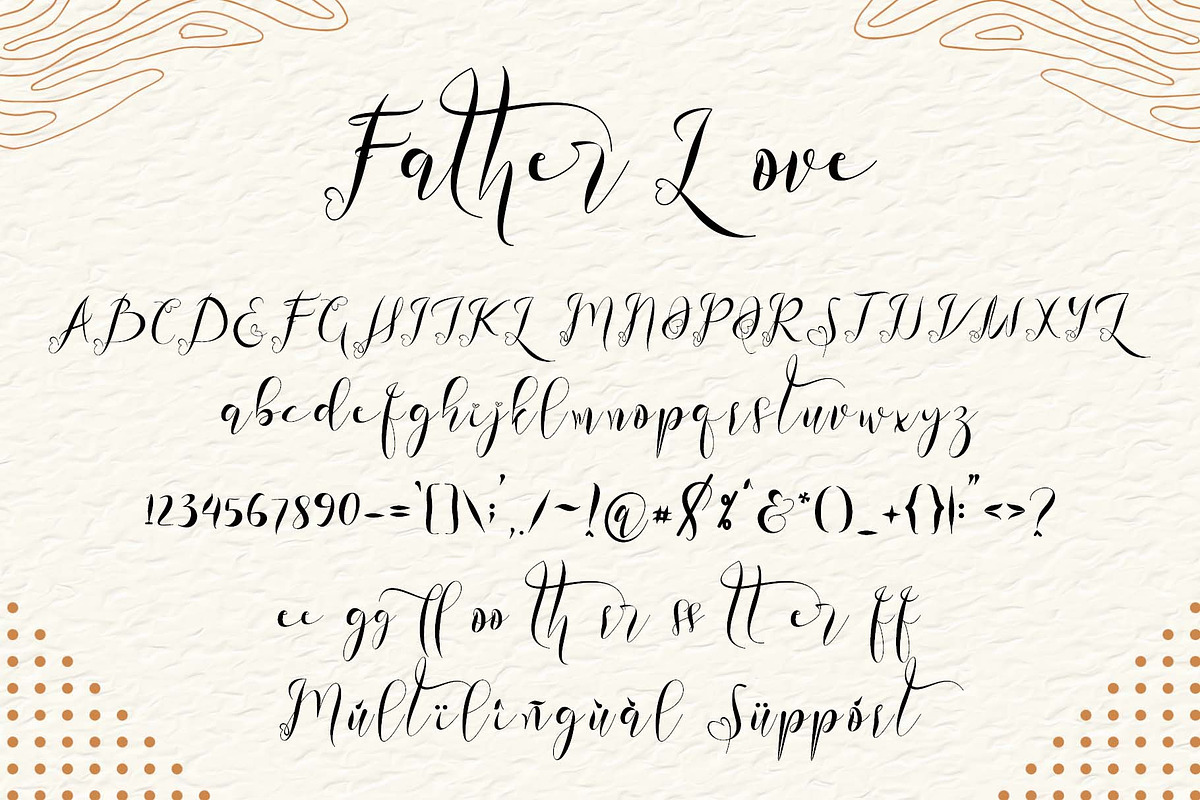 Father Love
ABCDEFGHIJKL MNOPQRSTUVWXYZ
abcdefghijklmnopqrstuvwxyz
1234567890-=`[]\;',./~!@#$%^&*()_+{}|:"<>?
ee gg ll oo th sr ss tt er ff
Múltïlîñgùàl Süppórt